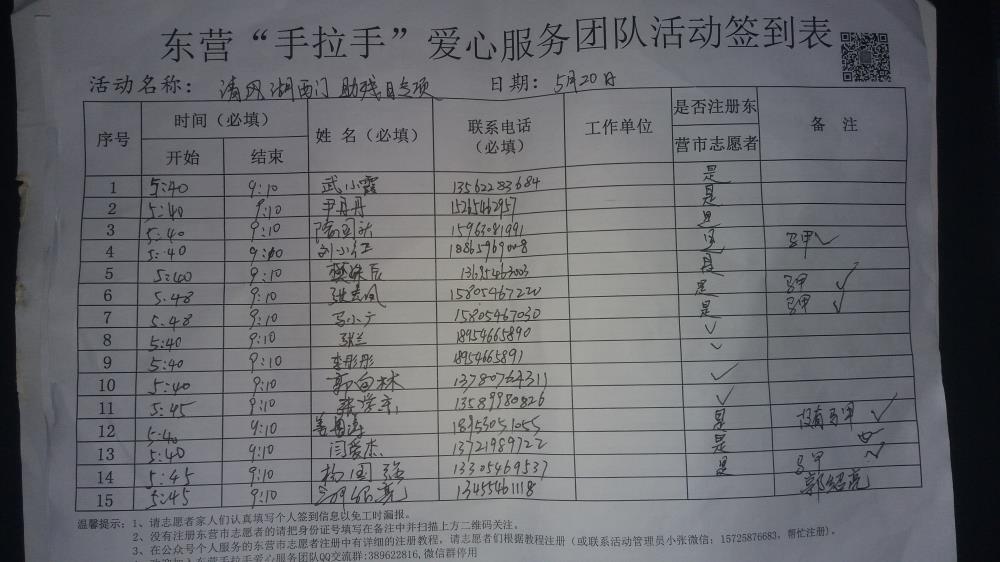 东营“手拉手”爱心服务团队活动签到表
活动名称： 清风湖西门助残日专项 日期： 5月20日
序号 时间（必填） 姓名（必填） 联系电话（必填） 工作单位 是否注册东营市志愿者 备注
开始 结束
1 5:40 9:10 武小霞 13562283684 是
2 5:40 9:10 尹丹丹 15265462957 是
3 5:40 9:10 15963081991 是
4 5:40 9:00 刘小红 18865969008 是 马甲✓
5 5:40 9:10 13695463003 是
6 5.48 9:10 15805467220 是 马甲 ✓
7 5.48 9:10 马小宁 15805467030 是 马甲 ✓
8 5:40 9:10 张兰 18954665890 ✓
9 5:40 9:10 李彤彤 18954665891 ✓
10 5:40 9:10 郭向林 13780764311 ✓
11 5:45 9:10 13589980826 ✓
12 5:40 9:10 18953051055 是 没有马甲 ✓
13 5:40 9:10 闫爱杰 13721989722 是
14 5:45 9:10 杨国强 13305469537 是 马甲 ✓
15 5:45 9:10 13455461118 郭绍亮
温馨提示：1、请志愿者家人们认真填写个人签到信息以免工时漏报。
2、没有注册东营市志愿者的请把身份证号填写在备注中并扫描上方二维码关注。
3、在公众号个人服务的东营市志愿者注册中有详细的注册教程，请志愿者们根据教程注册（或联系活动管理员小张微信：15725876683，帮忙注册）。
东营手拉手爱心服务团队QQ交流群:389622816,微信群停用